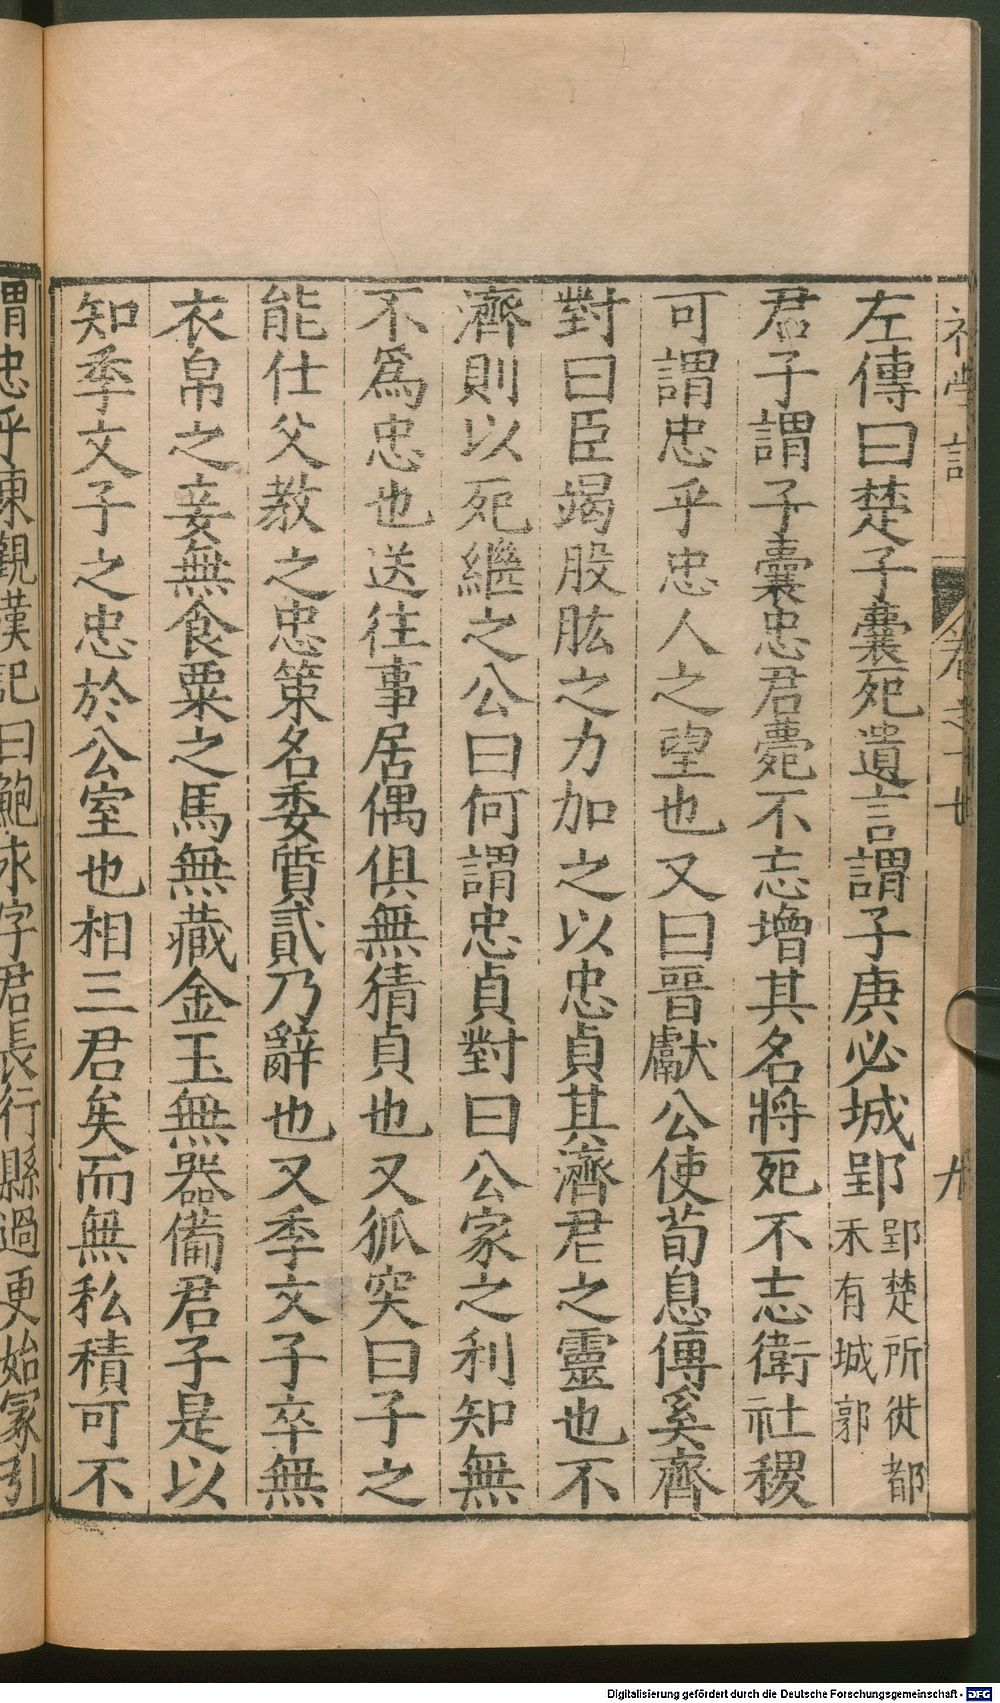 左傳曰楚子囊死遺言謂子庚必城郢郢楚所徙都未有城郭
君子謂子囊忠君薨不忘增其名將死不忘衛社稷
可謂忠乎忠人之望也又曰晉獻公使荀息傅奚齊
對曰臣竭股肱之力加之以忠貞其濟君之靈也不
濟則以死繼之公曰何謂忠貞對曰公家之利知無
不爲忠也送往事居偶俱無猜貞也又狐突曰子之
能仕父教之忠策名委質貳乃辭也又季文子卒無
衣帛之妾無食粟之馬無藏金玉無器備君子是以
知季文子之忠於公室也相三君矣而無私積可不
謂忠乎東觀漢記曰鮑永字君長行縣過更始冢引
Digitalisierung gefördert durch die Deutsche Forschungsgemeinschaft - DFG